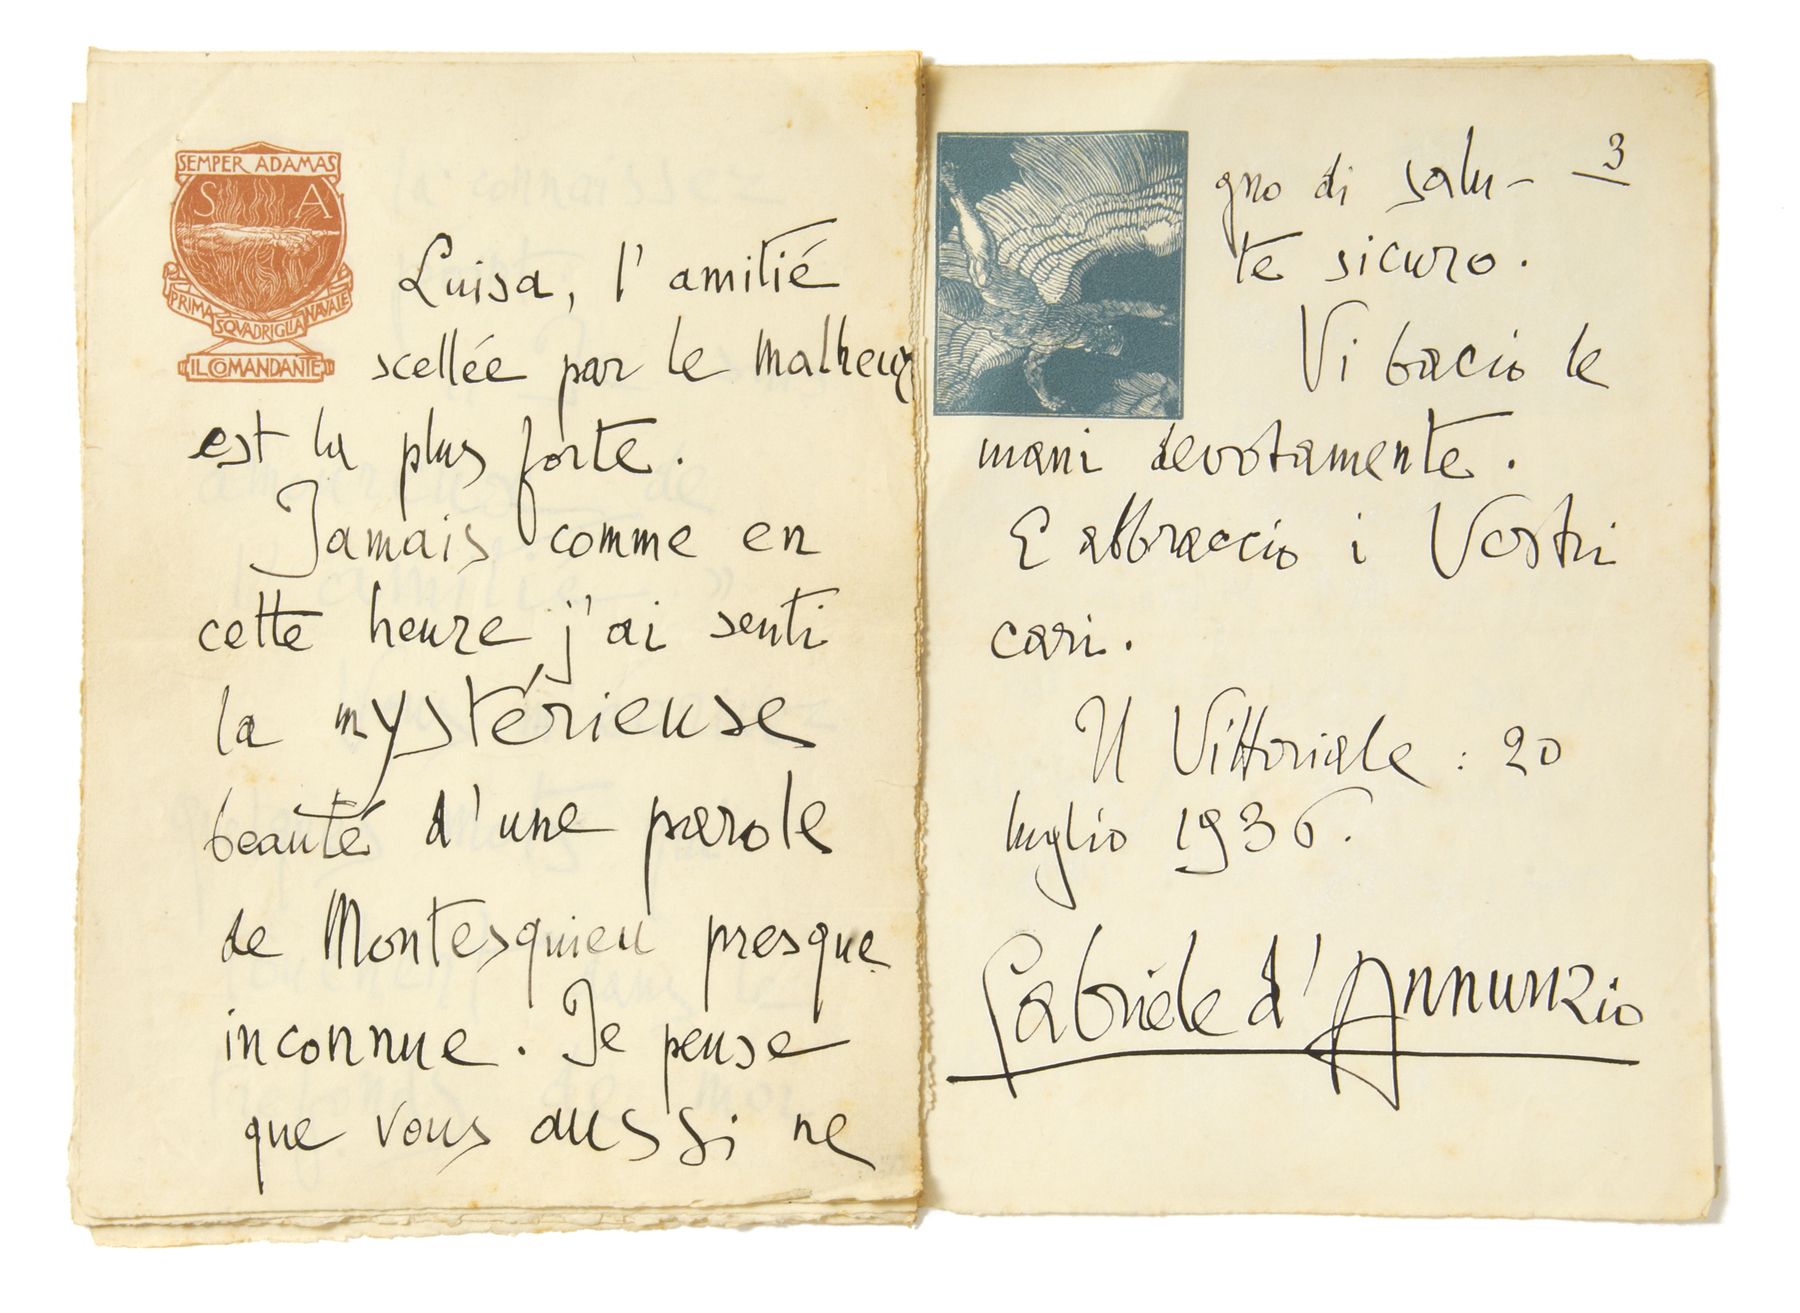 SEMPER ADAMAS
S A
PRIMA SQVADRIGLIA NAVALE
IL COMANDANTE
Luisa, l'amitié
scellée par le malheur
est la plus forte.
Jamais comme en
cette heure, j'ai senti
la mystérieuse
beauté d'une parole
de Montesquieu presque
inconnue. Je pense
que vous aussi ne
3
gno di salu-
te sicuro.
Vi bacio le
mani devotamente.
E abbraccio i Vostri
cari.
Il Vittoriale: 20
luglio 1936.
Gabriele d'Annunzio